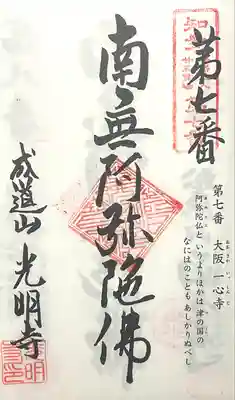 第七番
南無阿弥陀佛
成道山 光明寺
第七番 大阪 一心寺
阿弥陀仏と いうよりほかは 津の国の
なにはのことも あしかりぬべし